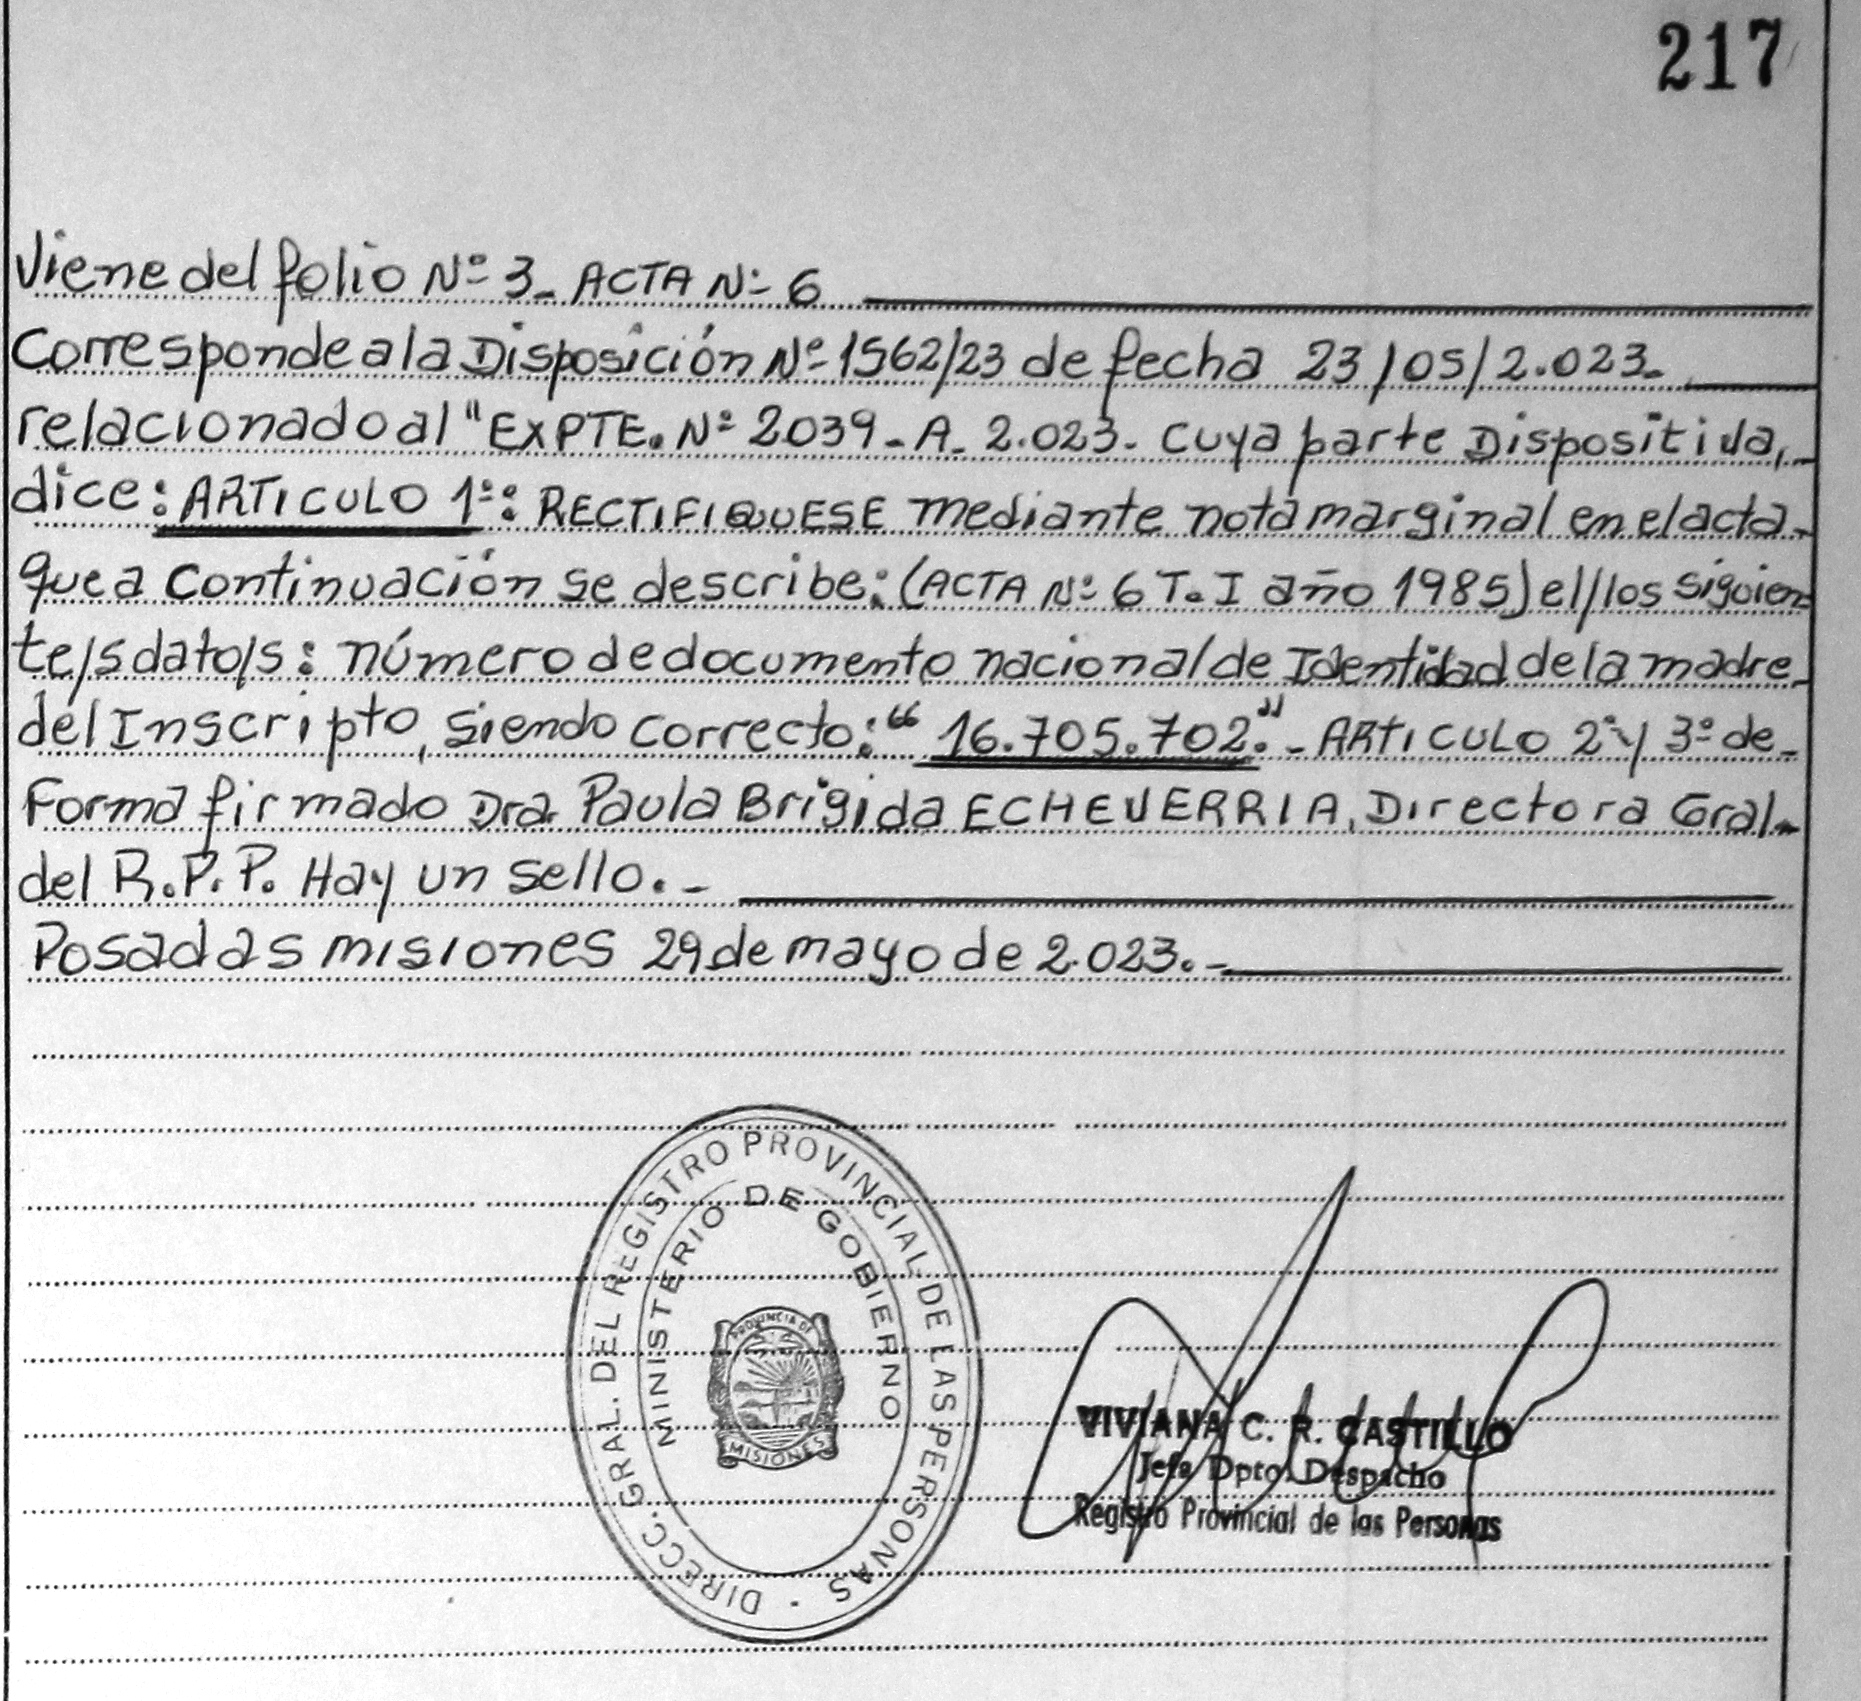 217
Viene del folio Nº 3_ ACTA Nº 6
Corresponde a la Disposición Nº 1562/23 de fecha 23/05/2.023_
relacionado al "EXPTE. Nº 2039_A_2.023- cuya parte Dispositiva,
dice: ARTICULO 1º: RECTIFIQUESE mediante nota marginal en el acta
que a continuación se describe: (ACTA Nº 6 T. I año 1985) el/los siguien
te/s dato/s: número de documento nacional de Identidad de la madre
del Inscripto, siendo correcto: "16.705.702."- ARTICULO 2º y 3º de
Forma firmado Dra. Paula Brigida ECHEVERRIA, Directora Gral.
del R.P.P. Hay un sello.-
Posadas misiones 29 de mayo de 2.023.-
DIRECC. GRAL. DEL REGISTRO PROVINCIAL DE LAS PERSONAS
MINISTERIO DE GOBIERNO
PROVINCIA DE
MISIONES
VIVIANA C. R. CASTILLO
Jefa Dpto. Despacho
Registro Provincial de las Personas